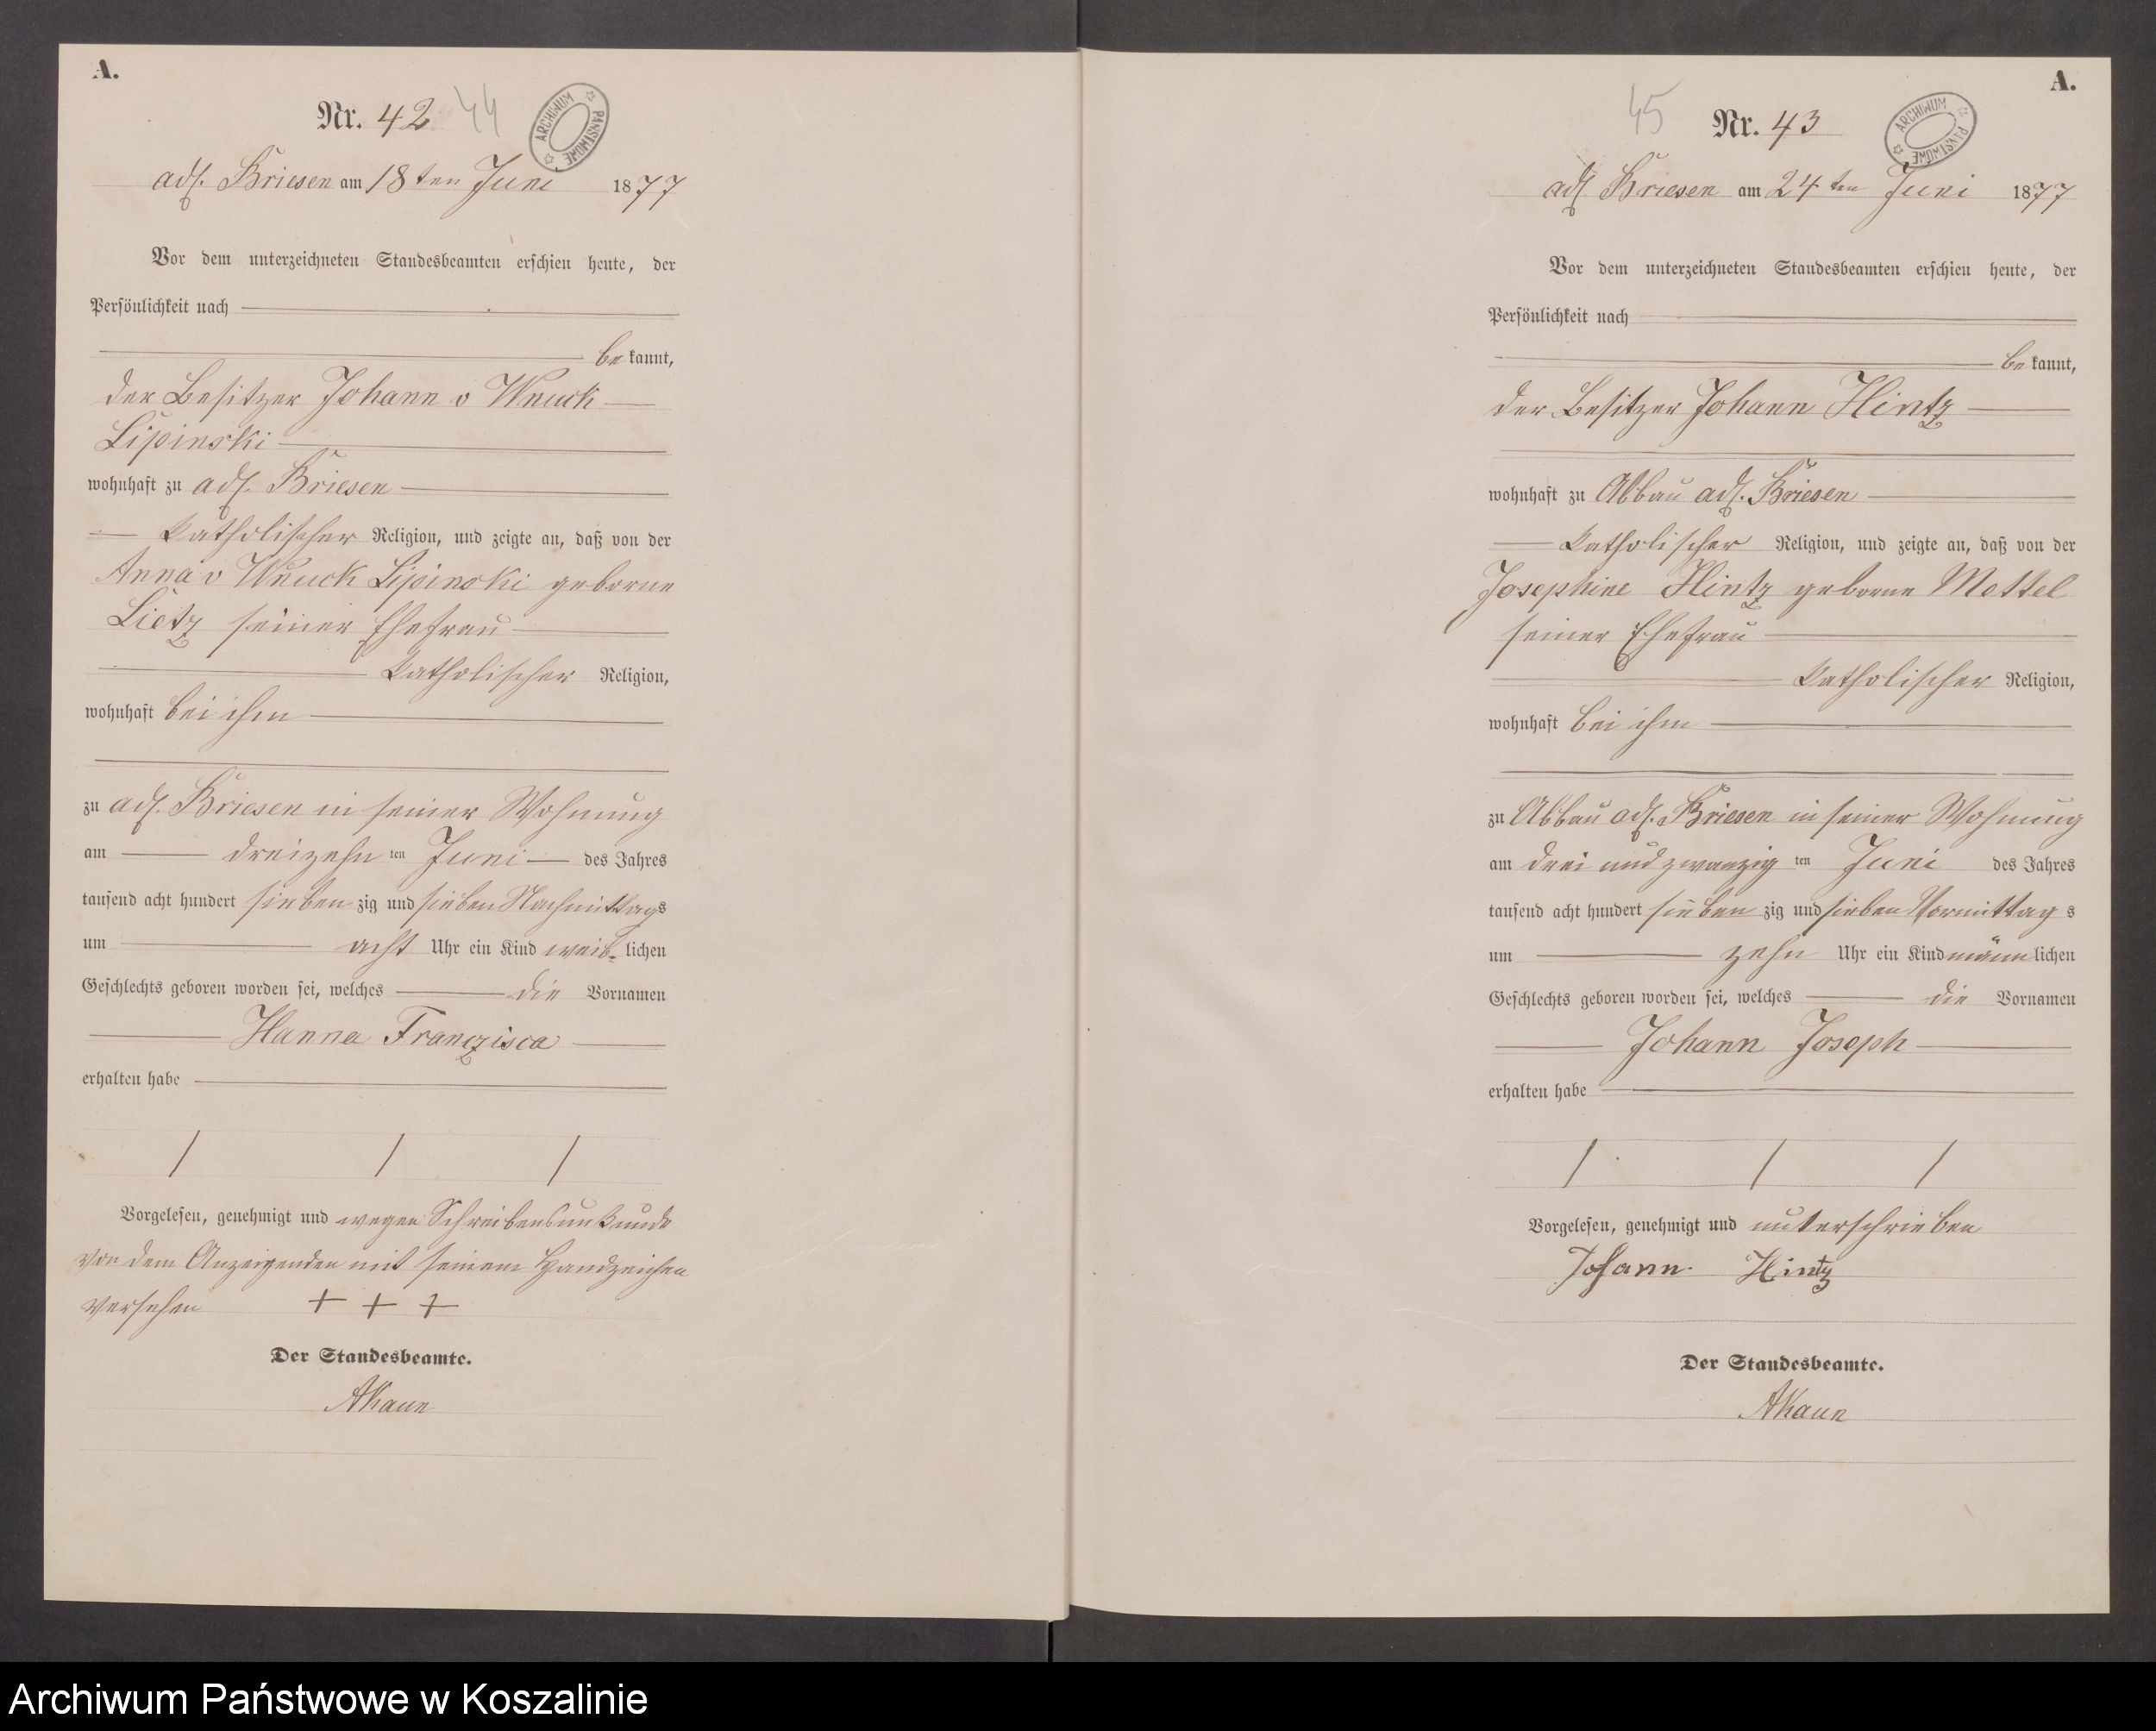 A.
Nr. 42 44
ARCHIWUM PAŃSTWOWE
adl. Briesen am 18ten Juni 1877
Vor dem unterzeichneten Standesbeamten erschien heute, der
Persönlichkeit nach
bekannt,
der Besitzer Johann v Wnuck
Lipinski
wohnhaft zu adl. Briesen
katholischer Religion, und zeigte an, daß von der
Anna v Wnuck Lipinski geborne
Lietz seiner Ehefrau
katholischer Religion,
wohnhaft bei ihm
zu adl. Briesen in seiner Wohnung
am dreizehn ten Juni des Jahres
tausend acht hundert sieben zig und sieben Nachmittags
um acht Uhr ein Kind weib- lichen
Geschlechts geboren worden sei, welches die Vornamen
Hanna Franzisca
erhalten habe
Vorgelesen, genehmigt und wegen Schreibensunkunde
von dem Anzeigenden mit seinem Handzeichen
versehen + + +
Der Standesbeamte.
AKaun
A.
45 Nr. 43
ARCHIWUM PAŃSTWOWE
adl Briesen am 24ten Juni 1877
Vor dem unterzeichneten Standesbeamten erschien heute, der
Persönlichkeit nach
bekannt,
der Besitzer Johann Hintz
wohnhaft zu Abbau adl. Briesen
katholischer Religion, und zeigte an, daß von der
Josephine Hintz geborne Mettel
seiner Ehefrau
katholischer Religion,
wohnhaft bei ihm
zu Abbau adl. Briesen in seiner Wohnung
am drei und zwanzig ten Juni des Jahres
tausend acht hundert sieben zig und sieben Vormittag s
um zehn Uhr ein Kind männ lichen
Geschlechts geboren worden sei, welches die Vornamen
Johann Joseph
erhalten habe
Vorgelesen, genehmigt und unterschrieben
Johann Hintz
Der Standesbeamte.
AKaun
Archiwum Państwowe w Koszalinie